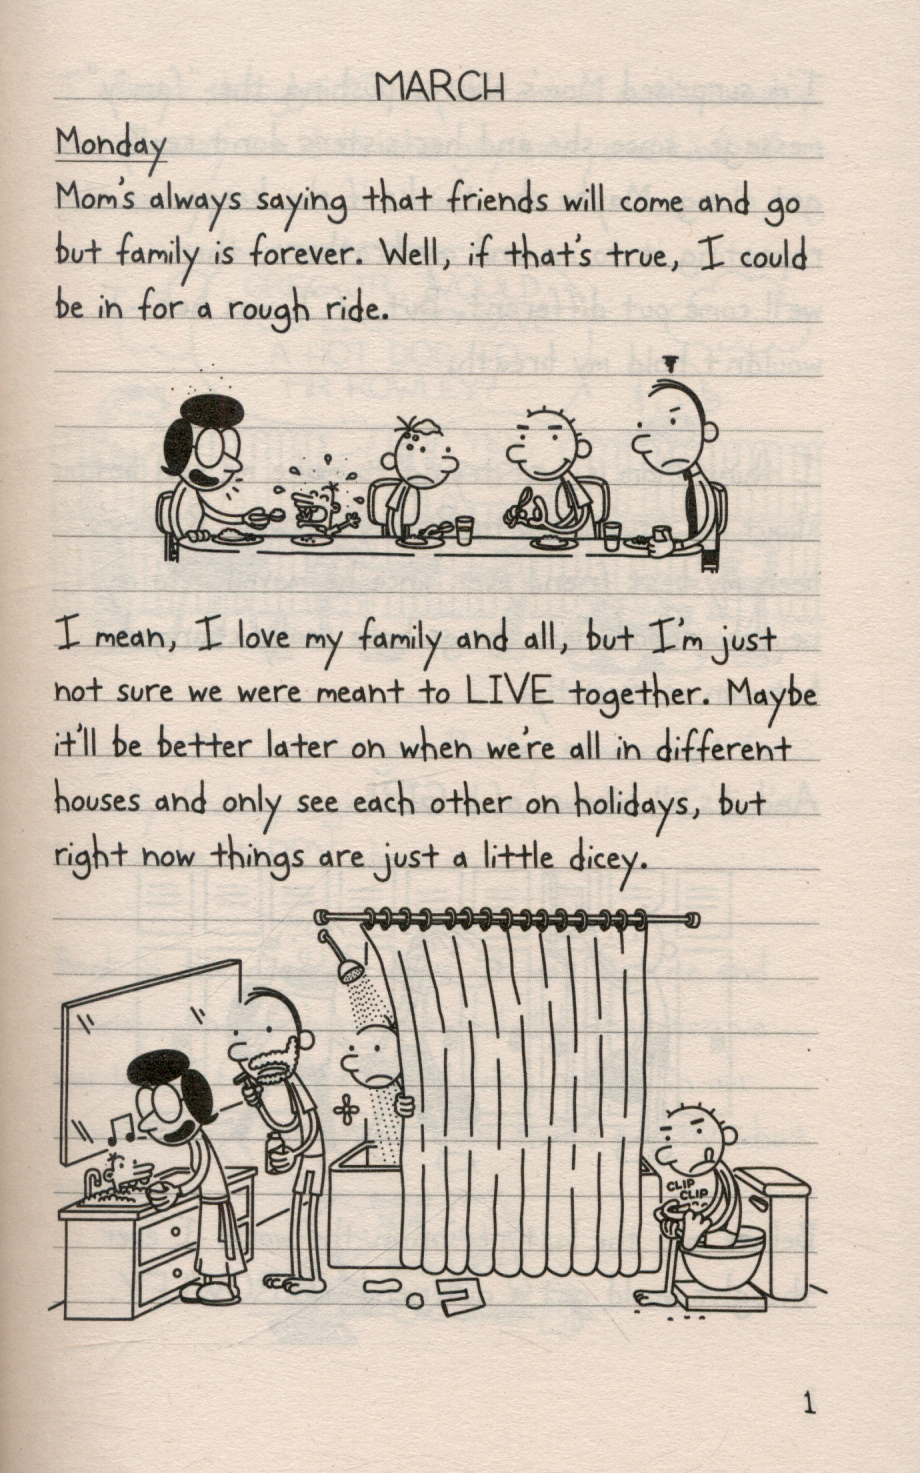 MARCH
Monday
Mom's always saying that friends will come and go
but family is forever. Well, if that's true, I could
be in for a rough ride.
I mean, I love my family and all, but I'm just
not sure we were meant to LIVE together. Maybe
it'll be better later on when we're all in different
houses and only see each other on holidays, but
right now things are just a little dicey.
CLIP
CLIP
1